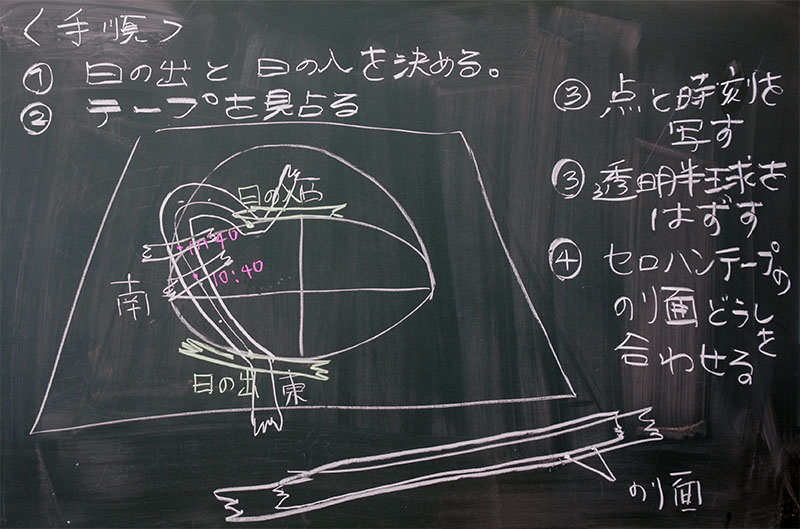 〈手順〉
① 日の出と日の入を決める。
② テープを見占る
③ 点と時刻を
写す
③ 透明半球を
はずす
④ セロハンテープの
のり面どうしを
合わせる
日の入
西
11:40
10:40
南
日の出
東
のり面